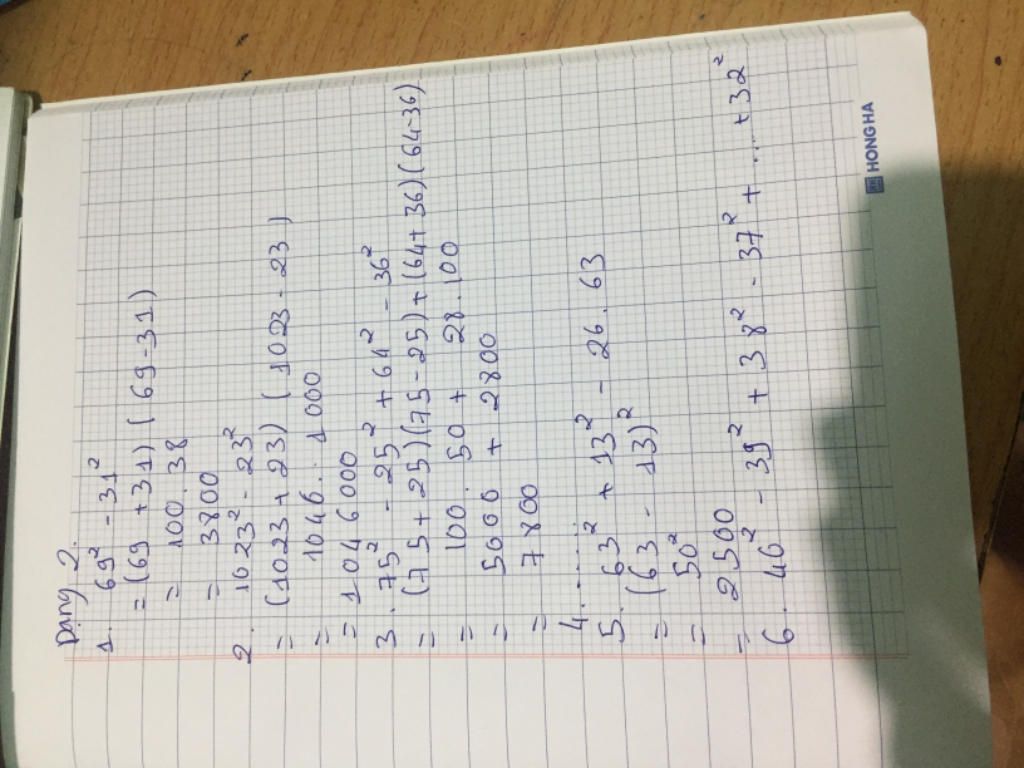 Dạng 2.
1. 69² - 31²
= (69 + 31) (69 - 31)
= 100. 38
= 3800
2. 1023² - 23²
= (1023 + 23) (1023 - 23)
= 1046. 1000
= 1046000
3. 75² - 25² + 64² - 36²
= (75 + 25)(75 - 25) + (64 + 36)(64 - 36)
= 100. 50 + 28. 100
= 5000 + 2800
= 7800
4. ......
5. 63² + 13² - 26. 63
= (63 - 13)²
= 50²
= 2500
6. 40² - 39² + 38² - 37² + .... + 32²
HONG HA